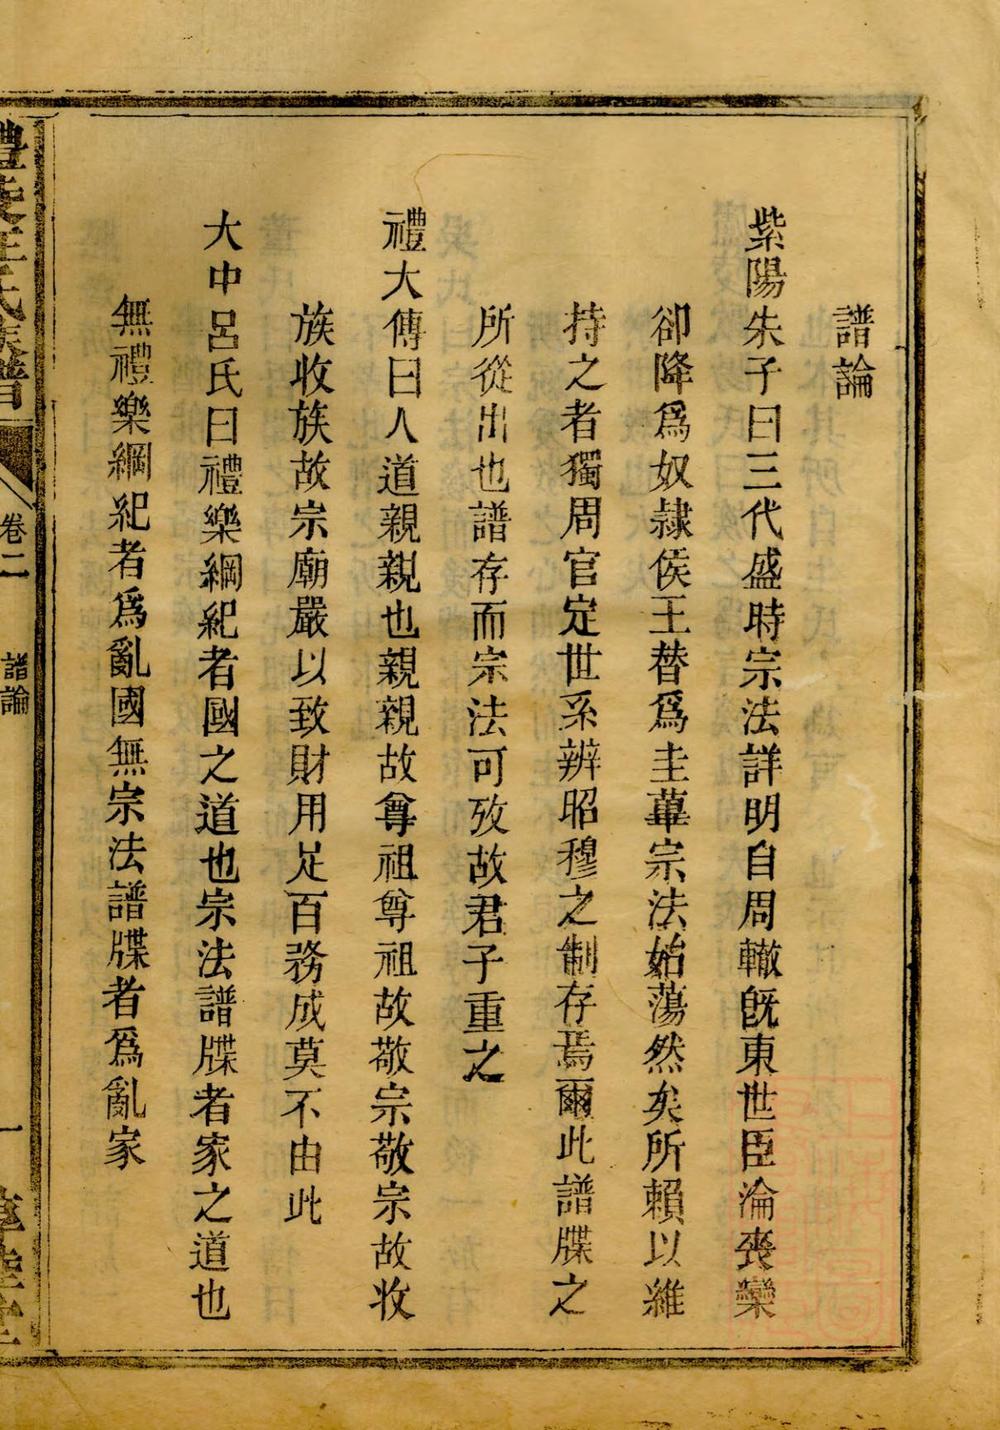 譜論
紫陽朱子曰三代盛時宗法詳明自周轍旣東世臣淪喪欒
卻降爲奴隷侯王替爲圭蓽宗法始蕩然矣所賴以維
持之者獨周官定世系辨昭穆之制存焉爾此譜牒之
所從出也譜存而宗法可攷故君子重之
禮大傳曰人道親親也親親故尊祖尊祖故敬宗敬宗故收
族收族故宗廟嚴以致財用足百務成莫不由此
大中呂氏曰禮樂綱紀者國之道也宗法譜牒者家之道也
無禮樂綱紀者爲亂國無宗法譜牒者爲亂家
氏族譜 卷二 譜論 一